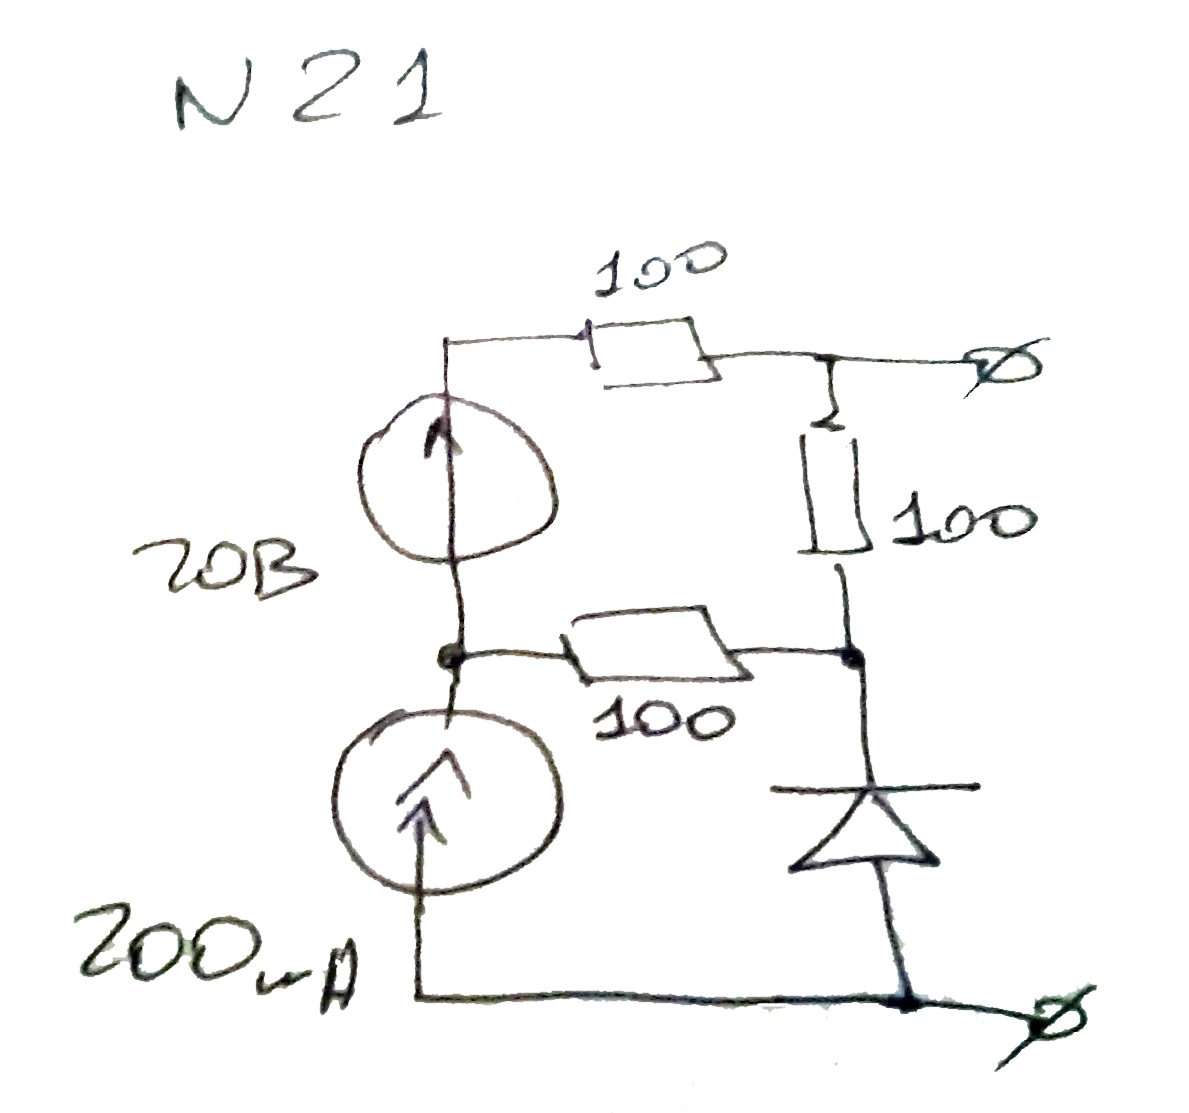 N 21
100
100
20В
100
200мА